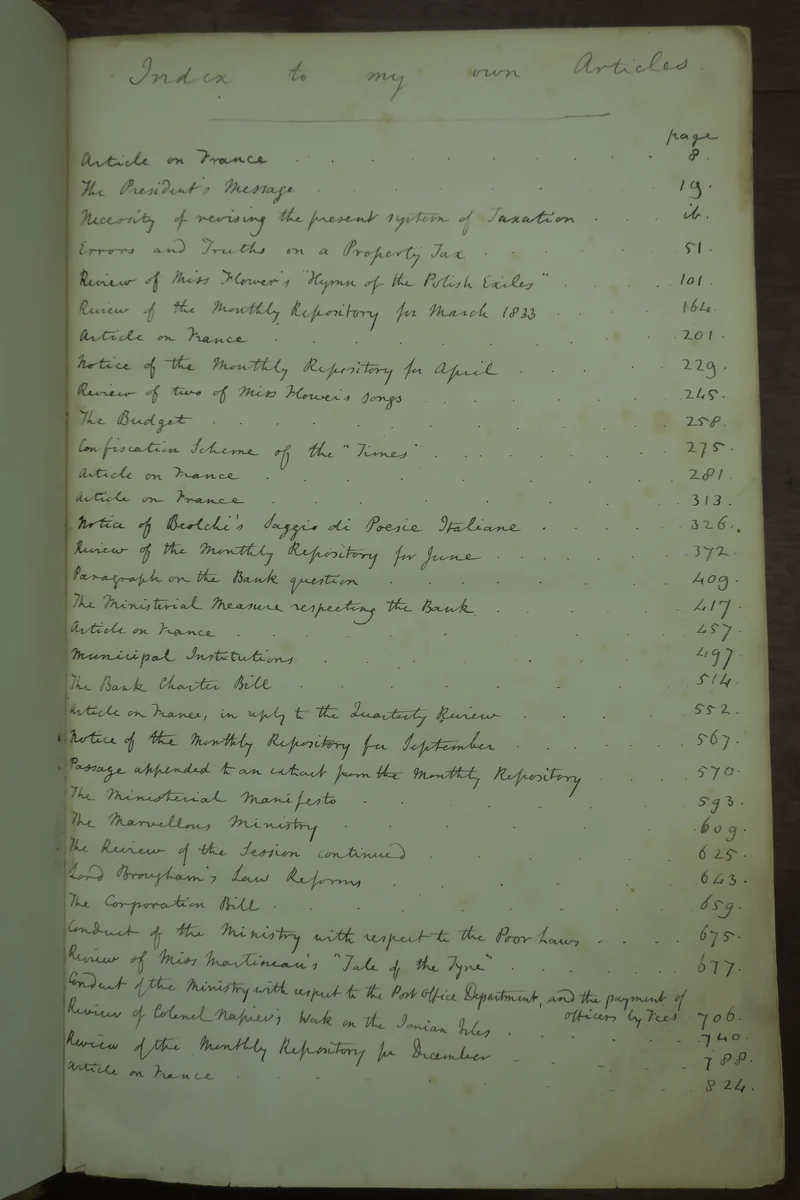 Index to my own Articles
page
Article on France 8.
The President's Message 19.
Necessity of revising the present system of Taxation ib.
Errors and Truths on a Property Tax 51.
Review of Miss Flower's "Hymn of the Polish Exiles" 101.
Review of the Monthly Repository for March 1833 164.
Article on France 201.
Notice of the Monthly Repository for April 229.
Review of two of Miss Flower's songs 245.
The Budget 258.
Confiscation Scheme of the "Times" 275.
Article on France 281.
Article on France 313.
Notice of Beolchi's Saggio di Poesie Italiane 326.
Review of the Monthly Repository for June 372.
Paragraph on the Bank question 409.
The Ministerial Measure respecting the Bank 417.
Article on France 457.
Municipal Institutions 497.
The Bank Charter Bill 514.
Article on France, in reply to the Quarterly Review 552.
Notice of the Monthly Repository for September 567.
Passage appended to an extract from the Monthly Repository 570.
The Ministerial Manifesto 593.
The Marvellous Ministry 609.
The Review of the Session continued 625.
Lord Brougham's Law Reforms 643.
The Corporation Bill 659.
Conduct of the Ministry with respect to the Poor Laws 675.
Review of Miss Martineau's "Tale of the Tyne" 677.
Conduct of the Ministry with respect to the Post Office Department, and the payment of
officers by Fees 706.
Review of Colonel Napier's Work on the Ionian Isles 740.
Review of the Monthly Repository for December 788.
Article on France 824.